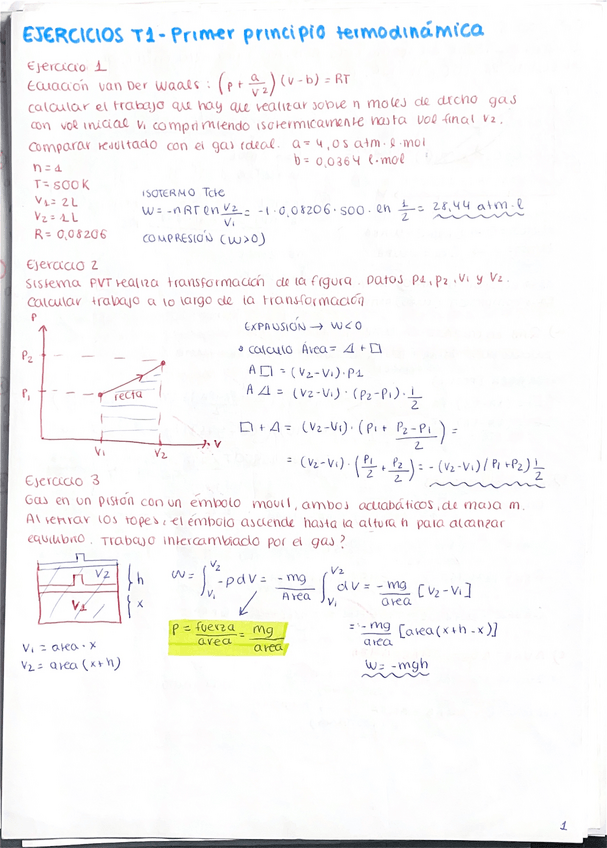 EJERCICIOS T1 - Primer principio termodinámica
Ejercicio 1
Ecuación van Der Waals : (p + a/v²) (v - b) = RT
calcular el trabajo que hay que realizar sobre n moles de dicho gas
con vol inicial Vi comprimiendo isotermicamente hasta vol final V2.
Comparar resultado con el gas ideal. a = 4,05 atm · l · mol
b = 0,0364 l · mol
n = 1
T = 500 K
V1 = 2L
V2 = 1L
R = 0,08206
ISOTERMO Tcte
W = -nRT ln V2/V1 = -1 · 0,08206 · 500 · ln 1/2 = 28,44 atm · l
COMPRESIÓN (W>0)
Ejercicio 2
Sistema PVT realiza transformación de la figura. Datos P1, P2, V1 y V2.
Calcular trabajo a lo largo de la transformación
P
P2
P1
recta
V1
V2
V
EXPANSIÓN → W<0
• calculo Área = △ + □
A □ = (V2-V1) · P1
A △ = (V2-V1) · (P2-P1) · 1/2
□ + △ = (V2-V1) · (P1 + (P2-P1)/2) =
= (V2-V1) · (P1/2 + P2/2) = -(V2-V1)(P1+P2) 1/2
Ejercicio 3
Gas en un pistón con un émbolo movil, ambos adiabáticos, de masa m.
Al retirar los topes, el émbolo asciende hasta la altura h para alcanzar
equilibrio. Trabajo intercambiado por el gas?
V2
V1
h
x
V1 = area · x
V2 = area (x+h)
W = ∫V1 V2 -p dV = -mg/Area ∫V1 V2 dV = -mg/area [V2-V1]
P = fuerza/area = mg/area
= -mg/area [area(x+h-x)]
W = -mgh
1